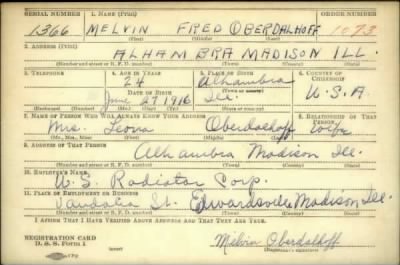 SERIAL NUMBER 1. NAME (Print) ORDER NUMBER
1366 MELVIN FRED OBERDALHOFF 1073
(First) (Middle) (Last)
2. ADDRESS (Print)
ALHAMBRA MADISON ILL.
(Number and street or R. F. D. number) (Town) (County) (State)
3. TELEPHONE 4. AGE IN YEARS 5. PLACE OF BIRTH 6. COUNTRY OF CITIZENSHIP
24 Alhambra
DATE OF BIRTH (Town or county)
June 27 1916 Ill. U.S.A
(Mo.) (Day) (Yr.) (State or country)
7. NAME OF PERSON WHO WILL ALWAYS KNOW YOUR ADDRESS 8. RELATIONSHIP OF THAT PERSON
Mrs. Leona Oberdalhoff Wife
(Mr., Mrs., Miss) (First) (Middle) (Last)
9. ADDRESS OF THAT PERSON
Alhambra Madison Ill.
(Number and street or R. F. D. number) (Town) (County) (State)
10. EMPLOYER'S NAME
U.S. Radiator Corp.
11. PLACE OF EMPLOYMENT OR BUSINESS
Vandalia St. Edwardsville Madison Ill.
(Number and street or R. F. D. number) (Town) (County) (State)
I AFFIRM THAT I HAVE VERIFIED ABOVE ANSWERS AND THAT THEY ARE TRUE.
REGISTRATION CARD
D. S. S. Form 1
Melvin Oberdalhoff